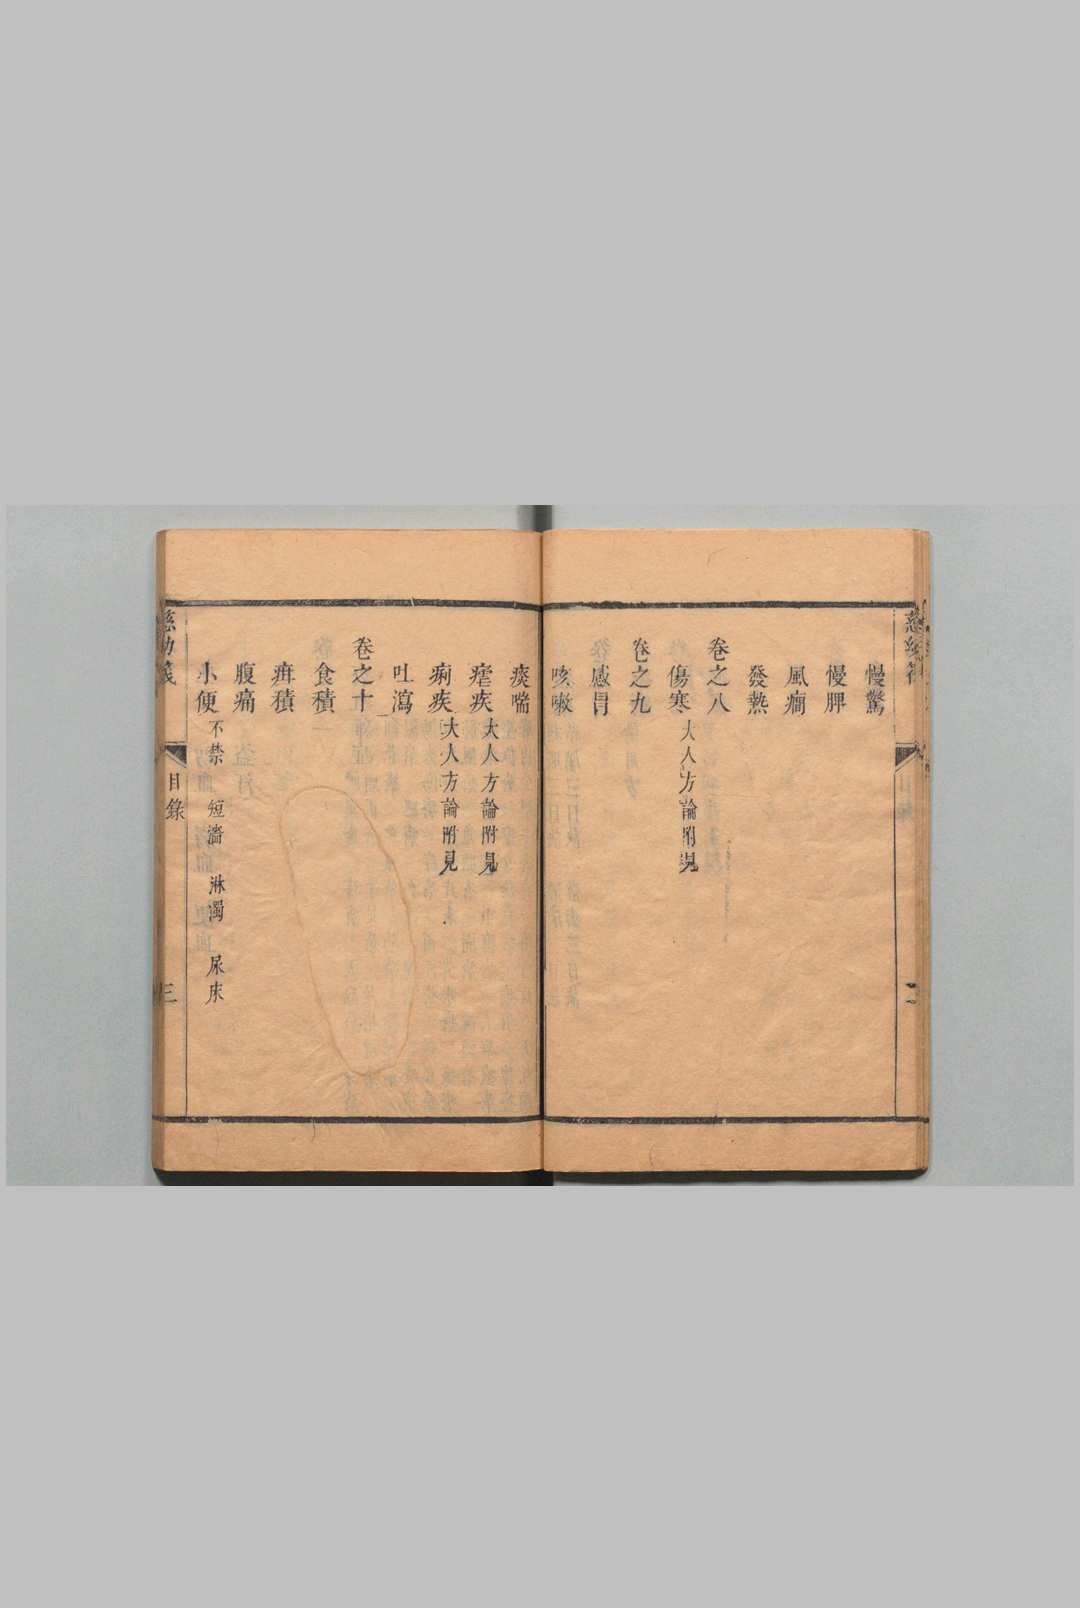 慢驚
慢脾
風癎
發熱
卷之八
傷寒 大人方論附見
卷之九
感冒
咳嗽
痰喘
瘧疾 大人方論附見
痢疾 大人方論附見
吐瀉
卷之十
食積
疳積
腹痛
小便 不禁 短濇 淋濁 尿床
慈幼筏 目錄 三